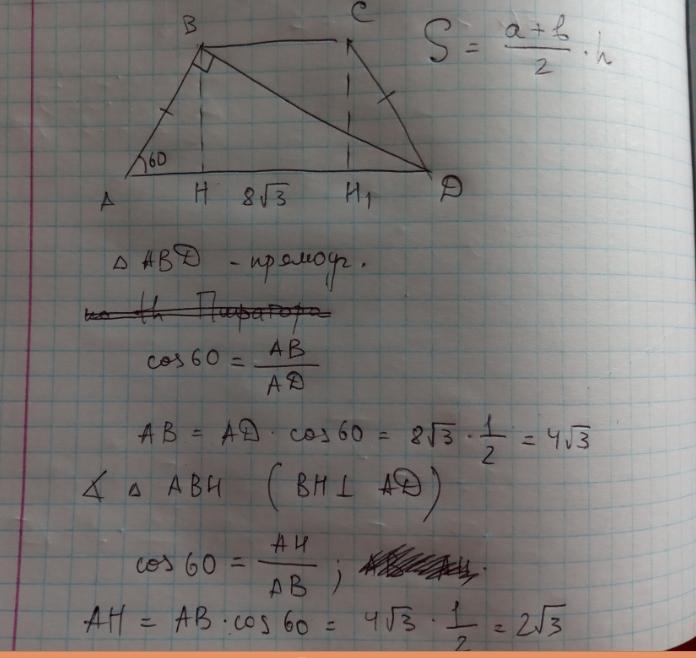 B C
S = (a+b)/2 · h
60
A H 8√3 H₁ D
△ ABD - прямоуг.
по th Пифагора
cos 60 = AB/AD
AB = AD · cos 60 = 8√3 · 1/2 = 4√3
∢ △ ABH (BH ⊥ AD)
cos 60 = AH/AB ;
AH = AB · cos 60 = 4√3 · 1/2 = 2√3